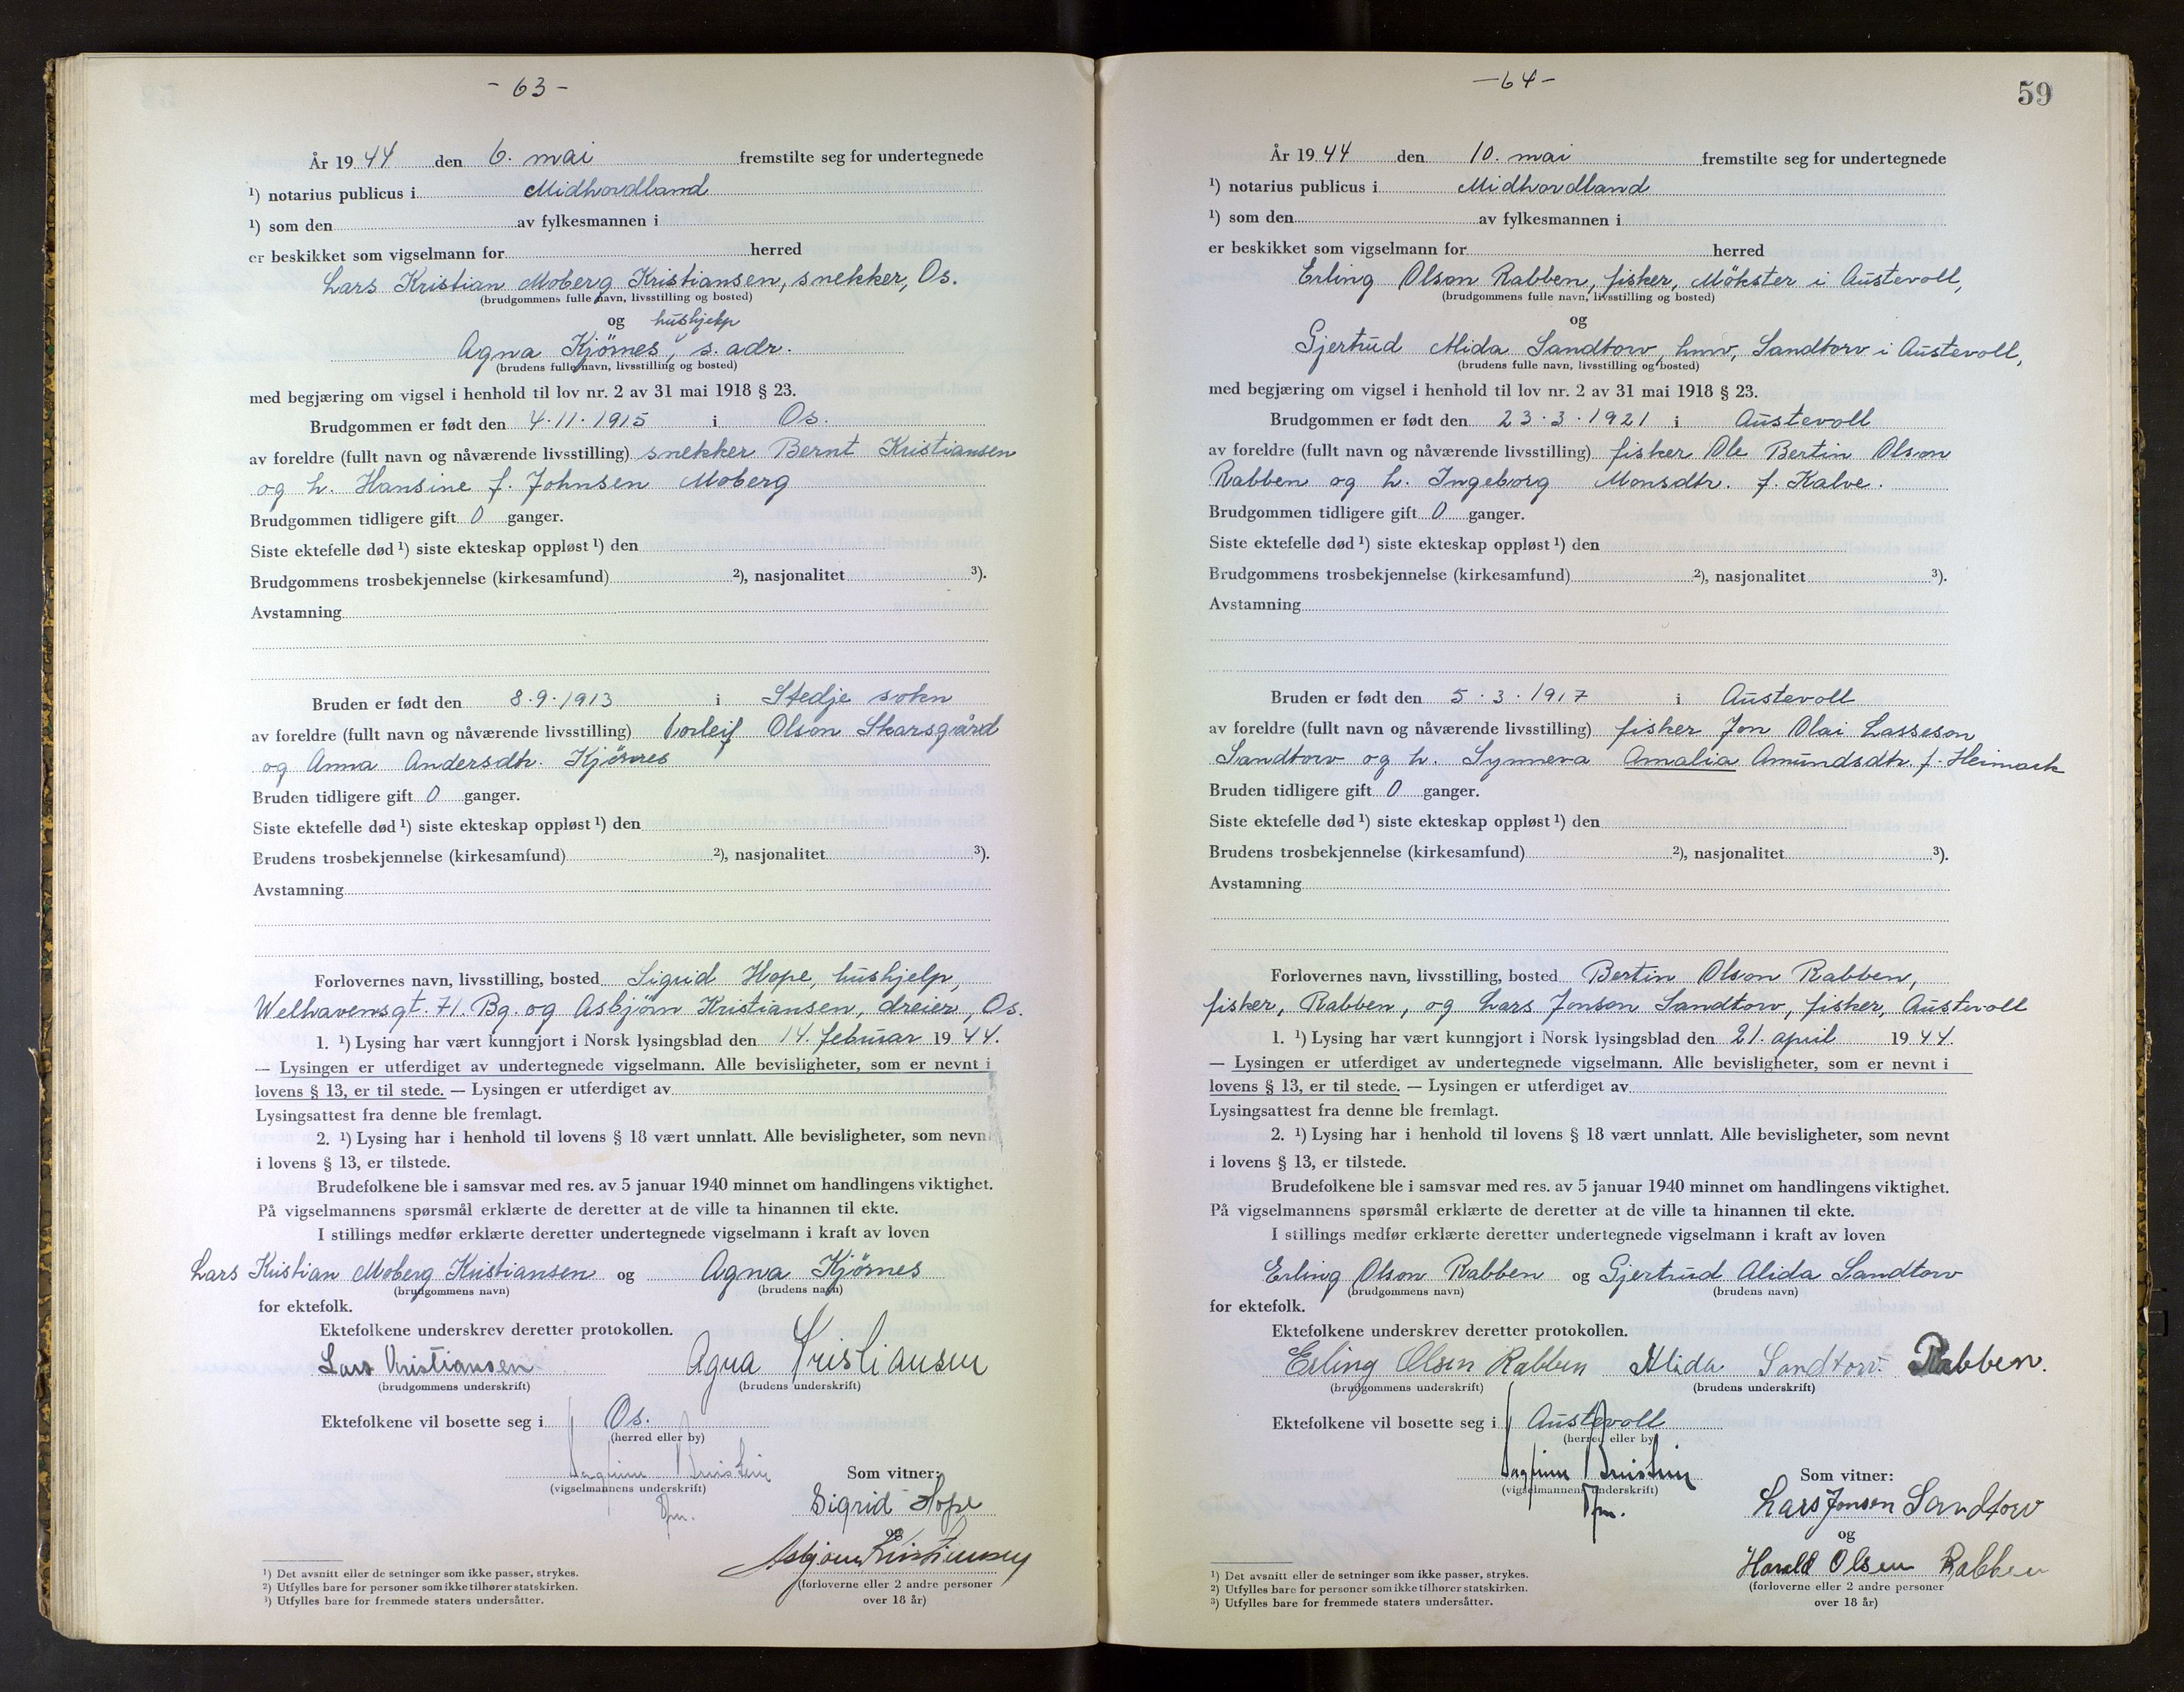 - 63 -
År 19 44 den 6. mai fremstilte seg for undertegnede
¹) notarius publicus i Midhordland
¹) som den av fylkesmannen i
er beskikket som vigselmann for herred
Lars Kristian Moberg Kristiansen, snekker, Os.
(brudgommens fulle navn, livsstilling og bosted)
og hushjelp
Agna Kjörnes, s. adr.
(brudens fulle navn, livsstilling og bosted)
med begjæring om vigsel i henhold til lov nr. 2 av 31 mai 1918 § 23.
Brudgommen er født den 4.11.1915 i Os.
av foreldre (fullt navn og nåværende livsstilling) snekker Bernt Kristiansen
og h. Hansine f. Johnsen Moberg
Brudgommen tidligere gift 0 ganger.
Siste ektefelle død ¹) siste ekteskap oppløst ¹) den
Brudgommens trosbekjennelse (kirkesamfund) ²), nasjonalitet ³).
Avstamning
Bruden er født den 8.9.1913 i Stedje sokn
av foreldre (fullt navn og nåværende livsstilling) Torleif Olson Skarsgård
og Anna Andersdtr. Kjörnes
Bruden tidligere gift 0 ganger.
Siste ektefelle død ¹) siste ekteskap oppløst ¹) den
Brudens trosbekjennelse (kirkesamfund) ²), nasjonalitet ³).
Avstamning
Forlovernes navn, livsstilling, bosted Sigrid Hope, hushjelp,
Welhavensgt. 71. Bg. og Asbjörn Kristiansen, dreier, Os.
1. ¹) Lysing har vært kunngjort i Norsk lysingsblad den 14. februar 19 44.
— Lysingen er utferdiget av undertegnede vigselmann. Alle bevisligheter, som er nevnt i
lovens § 13, er til stede. — Lysingen er utferdiget av
Lysingsattest fra denne ble fremlagt.
2. ¹) Lysing har i henhold til lovens § 18 vært unnlatt. Alle bevisligheter, som nevn
i lovens § 13, er tilstede.
Brudefolkene ble i samsvar med res. av 5 januar 1940 minnet om handlingens viktighet.
På vigselmannens spørsmål erklærte de deretter at de ville ta hinannen til ekte.
I stillings medfør erklærte deretter undertegnede vigselmann i kraft av loven
Lars Kristian Moberg Kristiansen og Agna Kjörnes
(brudgommens navn) (brudens navn)
for ektefolk.
Ektefolkene underskrev deretter protokollen.
Lars Kristiansen Agna Kristiansen
(brudgommens underskrift) (brudens underskrift)
Ektefolkene vil bosette seg i Os.
(herred eller by)
Som vitner:
(vigselmannens underskrift)
Sigrid Hope
og
Asbjørn Kristiansen
(forloverne eller 2 andre personer
over 18 år)
¹) Det avsnitt eller de setninger som ikke passer, strykes.
²) Utfylles bare for personer som ikke tilhører statskirken.
³) Utfylles bare for fremmede staters undersåtter.
- 64 -
59
År 19 44 den 10. mai fremstilte seg for undertegnede
¹) notarius publicus i Midhordland
¹) som den av fylkesmannen i
er beskikket som vigselmann for herred
Erling Olson Rabben, fisker, Mökster i Austevoll,
(brudgommens fulle navn, livsstilling og bosted)
og
Gjertrud Alida Sandtorv, hmv, Sandtorv i Austevoll,
(brudens fulle navn, livsstilling og bosted)
med begjæring om vigsel i henhold til lov nr. 2 av 31 mai 1918 § 23.
Brudgommen er født den 23.3.1921 i Austevoll
av foreldre (fullt navn og nåværende livsstilling) fisker Ole Bertin Olson
Rabben og h. Ingeborg Monsdtr. f. Kalve.
Brudgommen tidligere gift 0 ganger.
Siste ektefelle død ¹) siste ekteskap oppløst ¹) den
Brudgommens trosbekjennelse (kirkesamfund) ²), nasjonalitet ³).
Avstamning
Bruden er født den 5.3.1917 i Austevoll
av foreldre (fullt navn og nåværende livsstilling) fisker Jon Olai Lasseson
Sandtorv og h. Synneva Amalia Amundsdtr. f. Heimark
Bruden tidligere gift 0 ganger.
Siste ektefelle død ¹) siste ekteskap oppløst ¹) den
Brudens trosbekjennelse (kirkesamfund) ²), nasjonalitet ³).
Avstamning
Forlovernes navn, livsstilling, bosted Bertin Olson Rabben,
fisker, Rabben, og Lars Jonson Sandtorv, fisker, Austevoll
1. ¹) Lysing har vært kunngjort i Norsk lysingsblad den 21. april 19 44.
— Lysingen er utferdiget av undertegnede vigselmann. Alle bevisligheter, som er nevnt i
lovens § 13, er til stede. — Lysingen er utferdiget av
Lysingsattest fra denne ble fremlagt.
2. ¹) Lysing har i henhold til lovens § 18 vært unnlatt. Alle bevisligheter, som nevnt
i lovens § 13, er tilstede.
Brudefolkene ble i samsvar med res. av 5 januar 1940 minnet om handlingens viktighet.
På vigselmannens spørsmål erklærte de deretter at de ville ta hinannen til ekte.
I stillings medfør erklærte deretter undertegnede vigselmann i kraft av loven
Erling Olson Rabben og Gjertrud Alida Sandtorv
(brudgommens navn) (brudens navn)
for ektefolk.
Ektefolkene underskrev deretter protokollen.
Erling Olsen Rabben Alida Sandtorv Rabben.
(brudgommens underskrift) (brudens underskrift)
Ektefolkene vil bosette seg i Austevoll
(herred eller by)
Som vitner:
(vigselmannens underskrift)
Lars Jonsen Sandtorv
og
Harald Olsen Rabben
(forloverne eller 2 andre personer
over 18 år)
¹) Det avsnitt eller de setninger som ikke passer, strykes.
²) Utfylles bare for personer som ikke tilhører statskirken.
³) Utfylles bare for fremmede staters undersåtter.